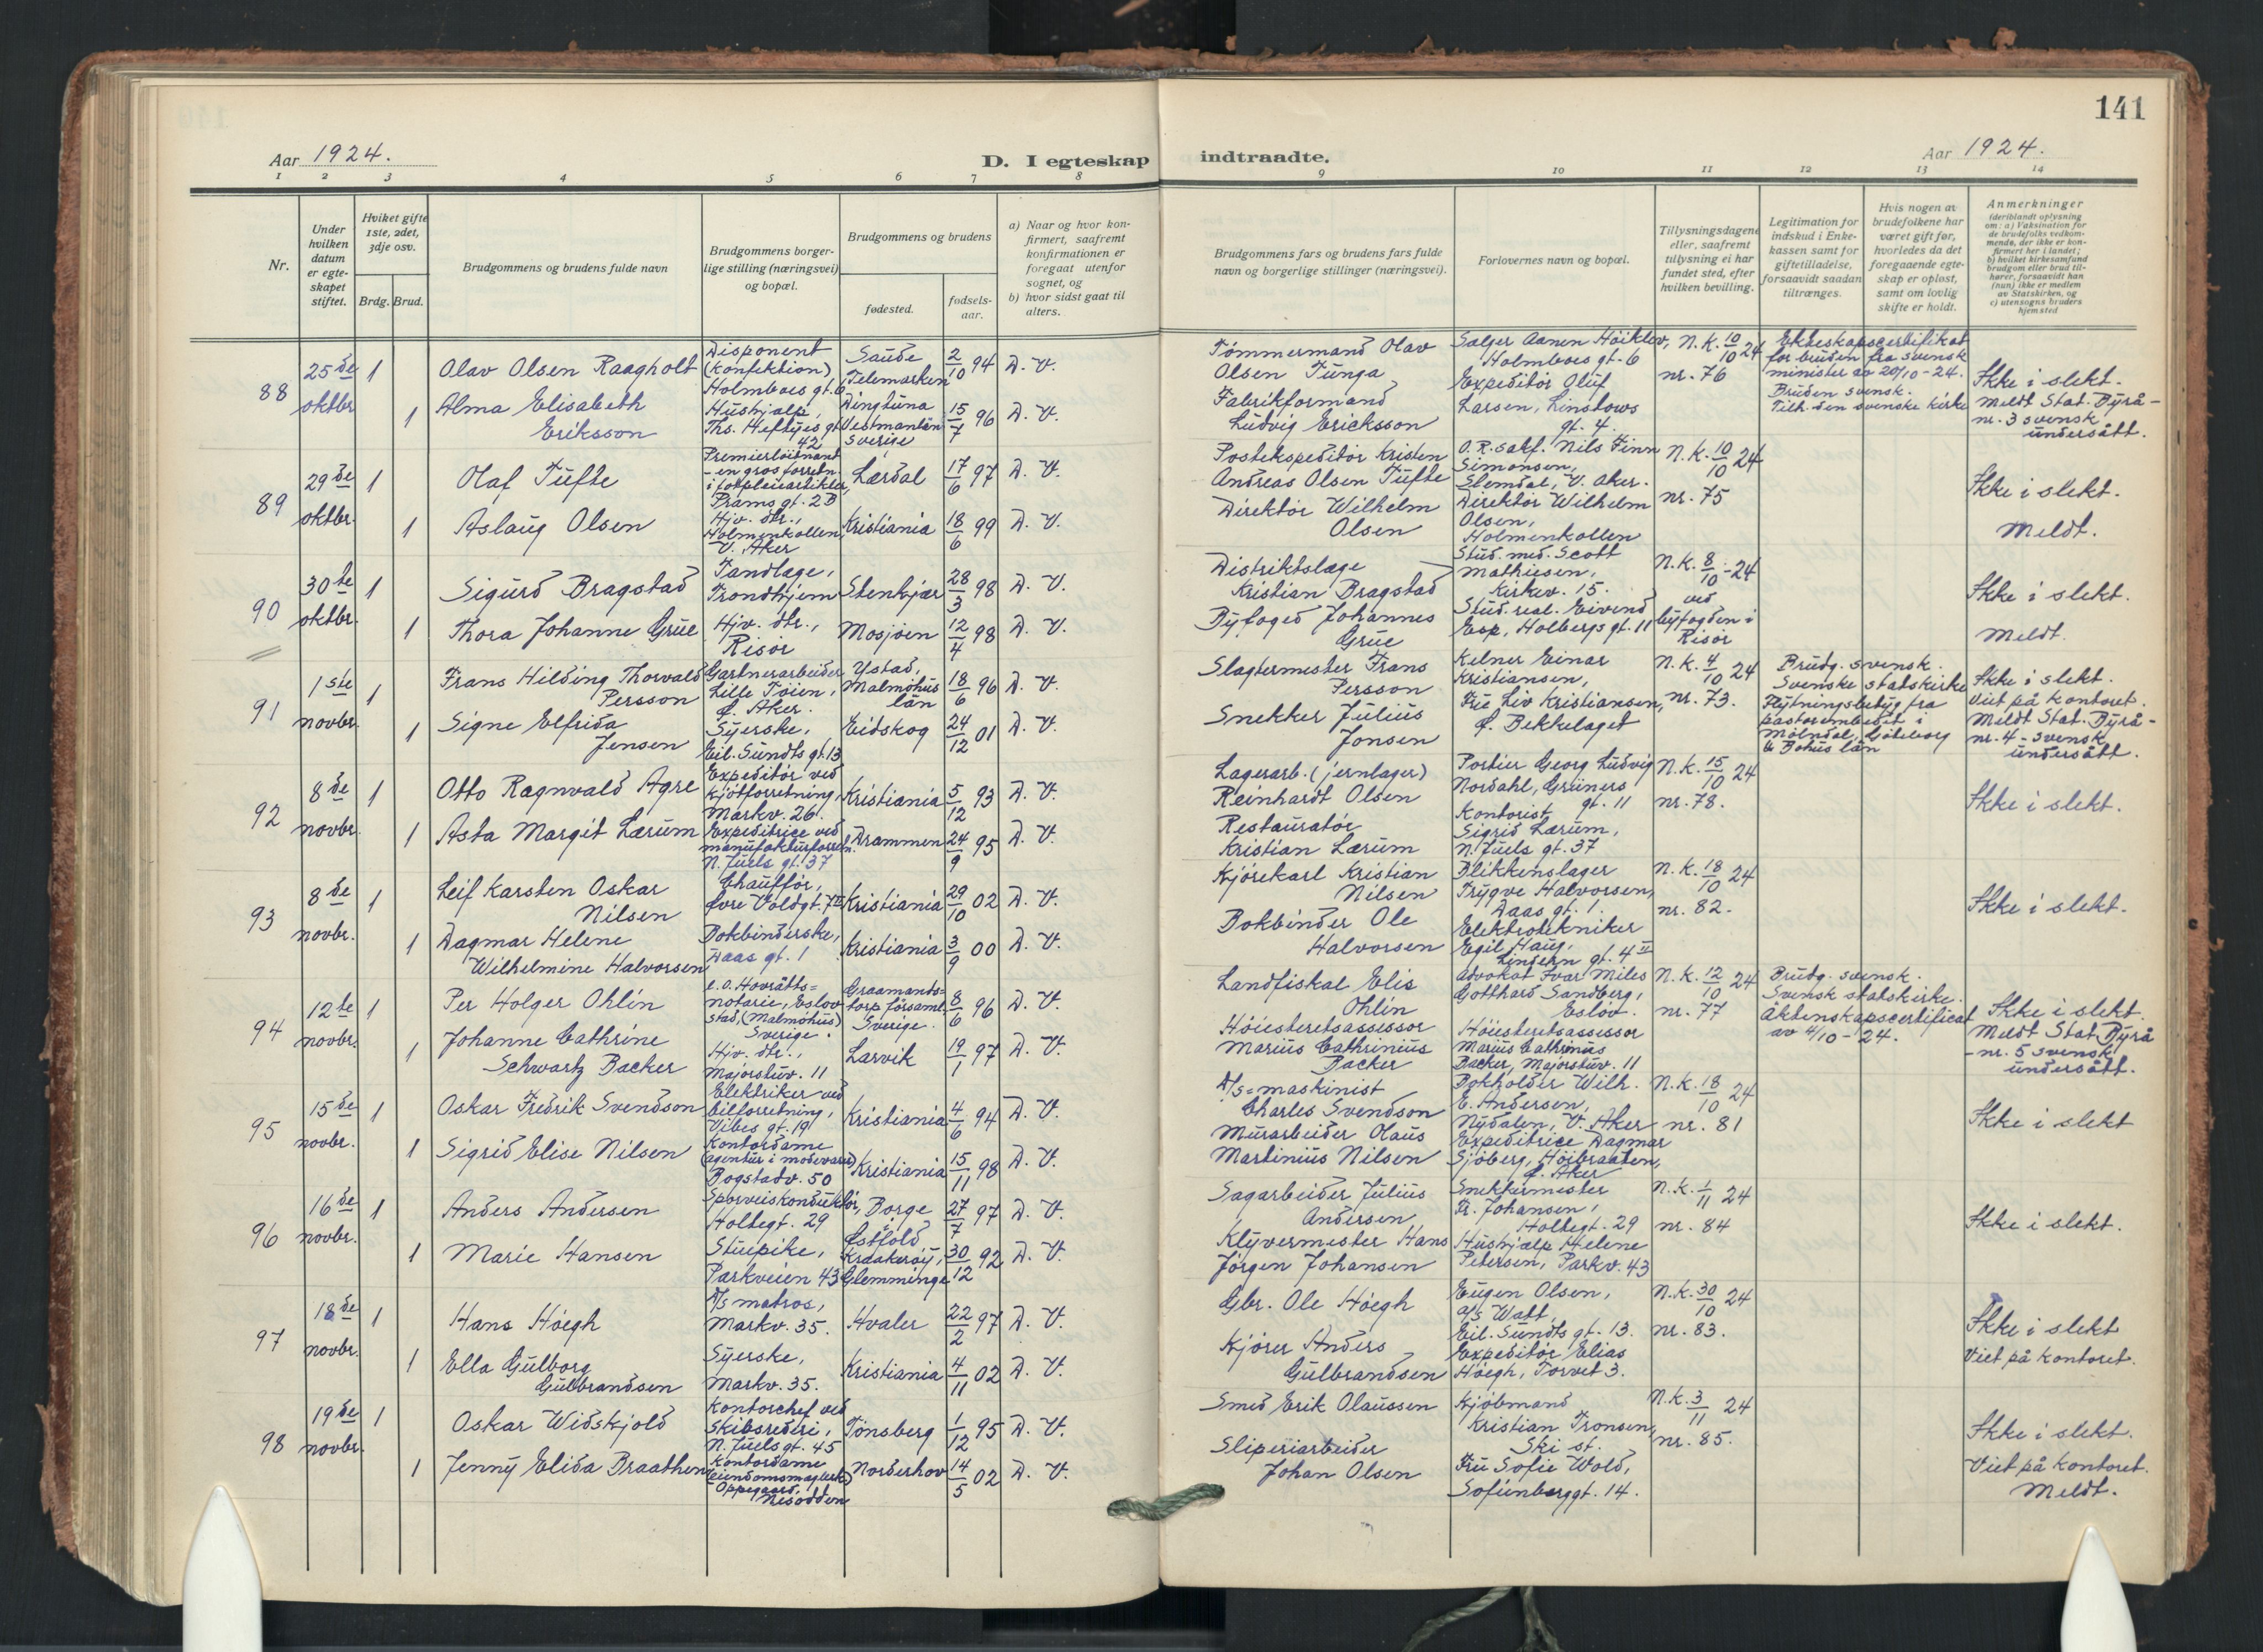 141
Aar 1924.
D. I egteskap indtraadte.
Aar 1924.
1 2 3 4 5 6 7 8 9 10 11 12 13 14
Nr.
Under hvilken datum er egteskapet stiftet.
Hviket gifte 1ste, 2det, 3dje osv.
Brdg. Brud.
Brudgommens og brudens fulde navn
Brudgommens borgerlige stilling (næringsvei) og bopæl.
Brudgommens og brudens
fødested.
fødselsaar.
a) Naar og hvor konfirmert, saafremt konfirmationen er foregaat utenfor sognet, og
b) hvor sidst gaat til alters.
Brudgommens fars og brudens fars fulde navn og borgerlige stillinger (næringsvei).
Forlovernes navn og bopæl.
Tillysningsdagene eller, saafremt tillysning ei har fundet sted, efter hvilken bevilling.
Legitimation for indskud i Enkekassen samt for giftetilladelse, forsaavidt saadan tiltrænges.
Hvis nogen av brudefolkene har været gift før, hvorledes da det foregaaende egteskap er opløst, samt om lovlig skifte er holdt.
Anmerkninger
(deriblandt oplysning om: a) Vaksination for de brudefolks vedkommende, der ikke er konfirmert her i landet;
b) hvilket kirkesamfund brudgom eller brud tilhører, forsaavidt han (hun) ikke er medlem av Statskirken, og
c) utensogns bruders hjemsted
88
25de oktbr
1
Olav Olsen Raagholt
Disponent (konfektion) Holmboes gt. 6
Saude Telemarken
2/10 94
D. V.
Tømmermand Olav Olsen Tunga
Sælger Aanen Høiklev, Holmboes gt. 6
N.K. 10/10 24 nr. 76
Ekteskapscertifikat for bruden fra svensk minister av 20/10-24.
Bruden svensk.
Tilh. den svenske kirke
Ikke i slekt.
Meldt Stat. Byrå-
nr. 3 svensk
undersått.
1
Alma Elisabeth Eriksson
Hushjælp, Ths. Heftyes gt 42
Dingtuna Vestmanlän Sverige
15/7 96
D. V.
Fabrikformand Ludvig Ericksson
Expeditør Oluf Larsen, Linstows gt. 4.
89
29de oktbr.
1
Olaf Tufte
Premierløitnant - en gros forretn. i
Prams gt. 2B
Lærdal
17/6 97
D. V.
Postekspeditør Kristen Andreas Olsen Tufte
O.R. sakf. Nils Finn Simonsen, Slemdal, V. Aker.
N.K. 10/10 24 nr. 75
Ikke i slekt.
1
Aslaug Olsen
Hjv. dtr., Holmenkollen, V. Aker
Kristiania
18/6 99
D. V.
Direktør Wilhelm Olsen
Direktør Wilhelm Olsen, Holmenkollen
Meldt.
90
30te oktbr.
1
Sigurd Bragstad
Tandlæge, Trondhjem
Stenkjær
28/3 98
D. V.
Distriktslæge Kristian Bragstad
Stud. med. Scott Mathiesen, Kirkev. 15.
N.K. 8/10-24 ved byfogden i Risør
Ikke i slekt.
1
Thora Johanne Grue
Hjv. dtr., Risør
Mosjøen
12/4 98
D. V.
Byfoged Johannes Grue
Stud. real. Eivind Esp, Holbergs gt. 11
Meldt.
91
1ste novbr.
1
Frans Hilding Thorvald Persson
Gartnerarbeider, Lille Tøien, Ø. Aker.
Ystad, Malmöhus län
18/6 96
D. V.
Slagtermester Frans Persson
Kelner Einar Kristiansen,
N.K. 4/10 24 nr. 73.
Brudg. svensk.
Svenske statskirke
Flytningsbetyg fra pastorembedet i Mölndal, Göteborg & Bohus län
Ikke i slekt.
Viet på kontoret.
Meldt Stat. Byrå-
nr. 4 - svensk
undersått.
1
Signe Elfrida Jensen
Syerske, Eil. Sundts gt. 13
Eidskog
24/12 01
D. V.
Snekker Julius Jonsen
Frue Liv Kristiansen, Ø. Bekkelaget
92
8de novbr.
1
Otto Ragnvald Agre
Expeditør ved kjøtforretning, Markv. 26.
Kristiania
5/12 93
D. V.
Lagerarb. (jernlager) Reinhardt Olsen
Portier Georg Ludvig Nordahl, Grüners gt. 11
N.K. 15/10 24 nr. 78.
Ikke i slekt.
1
Asta Margit Lærum
Expeditrice ved manufakturforretn. N. Juels gt. 37
Drammen
24/9 95
D. V.
Restauratør Kristian Lærum
Kontorist Sigrid Lærum, N. Juels gt. 37
93
8de novbr.
1
Leif Karsten Oskar Nilsen
Chauffør, Øvre Voldgt. 7 II
Kristiania
29/10 02
D. V.
Kjørekarl Kristian Nilsen
Blikkenslager Trygve Halvorsen, Daas gt. 1.
N.K. 18/10 24 nr. 82.
Ikke i slekt.
1
Dagmar Helene Wilhelmine Halvorsen
Bokbinderske, Daas gt. 1
Kristiania
3/9 00
D. V.
Bokbinder Ole Halvorsen
Elektrotekniker Egil Haug, Lindern gt. 4 II
94
12te novbr.
1
Per Holger Ohlin
e.o. Hovrätts=notarie, Eslöv stad, (Malmöhus) Sverige.
Graamandstorp församl. Sverige.
8/6 96
D. V.
Landfiskal Elis Ohlin
Advokat Ivar Miles Gotthard Sandberg, Eslöv.
N.K. 12/10 24 nr. 77
Brudg. svensk.
Svensk statskirke.
Äktenskapscertificat av 4/10-24.
Ikke i slekt.
Meldt Stat. Byrå
- nr. 5 svensk
undersått.
1
Johanne Cathrine Schwartz Backer
Hjv. dtr., Majorstuv. 11
Larvik
19/1 97
D. V.
Høiesteretsassessor Marius Cathrinius Backer
Høiesteretsassessor Marius Cathrinius Backer, Majorstuv. 11
95
15de novbr.
1
Oskar Fredrik Svendson
Elektriker ved bilforretning, Vibes gt. 19
Kristiania
4/6 94
D. V.
D/s=maskinist Charles Svendson
Bokholder Wilh. E. Andersen, Nydalen, V. Aker
N.K. 18/10 24 nr. 81
Ikke i slekt
1
Sigrid Elise Nilsen
Kontordame (agentur i motevarer) Bogstadv. 50
Kristiania
15/11 98
D. V.
Murarbeider Olaus Martinius Nilsen
Expeditrice Dagmar Sjöberg, Høibraaten, Ø. Aker
96
16de novbr.
1
Anders Andersen
Sporveiskonduktør, Holtegt. 29
Borge Østfold
27/7 97
D. V.
Sagarbeider Julius Andersen
Snekkermester Fr. Johansen, Holtegt. 29
N.K. 1/11 24 nr. 84
Ikke i slekt.
1
Marie Hansen
Stuepike, Parkveien 43
Kraakerøy, Glemminge
30/12 92
D. V.
Kløvermester Hans Jørgen Johansen
Hushjælp Helene Petersen, Parkv. 43
97
18de novbr.
1
Hans Høegh
D/s matros, Markv. 35.
Hvaler
22/2 97
D. V.
Gbr. Ole Høegh
Eugen Olsen, a/s Watt, Eil. Sundts gt. 13.
N.K. 30/10 24 nr. 83.
Ikke i slekt
Viet på kontoret.
1
Ella Gulborg Gulbrandsen
Syerske, Markv. 35.
Kristiania
4/11 02
D. V.
Kjører Anders Gulbrandsen
Expeditør Elias Høegh, Torvet 3.
98
19de novbr.
1
Oskar Widskjold
Kontorchef ved Skibsrederi, N. Juels gt. 45
Tønsberg
1/12 95
D. V.
Smed Erik Olaussen
Kjøbmand Kristian Tronsen, Ski st.
N.K. 3/11 24 nr. 85.
Ikke i slekt.
1
Jenny Elida Braathen
Kontordame (eiendomsmægler) Oppegaard, Nesodden
Norderhov
14/5 02
D. V.
Sliperiarbeider Johan Olsen
Frue Sofie Wold, Sofienberggt. 14.
Viet på kontoret.
Meldt.